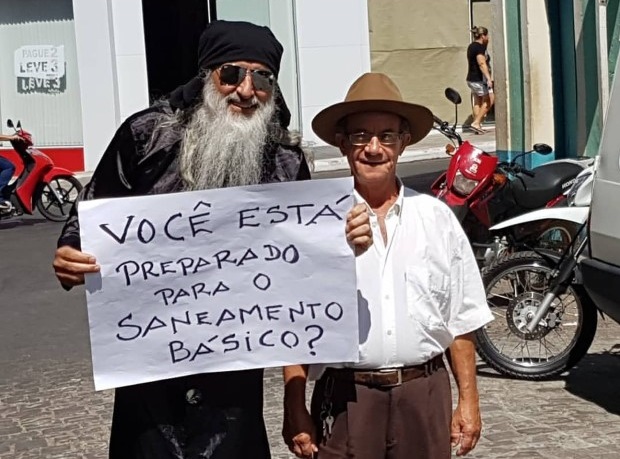 PAGUE 2
LEVE 3
LEVE 3
VOCÊ ESTÁ
PREPARADO
PARA O
SANEAMENTO
BÁSICO?